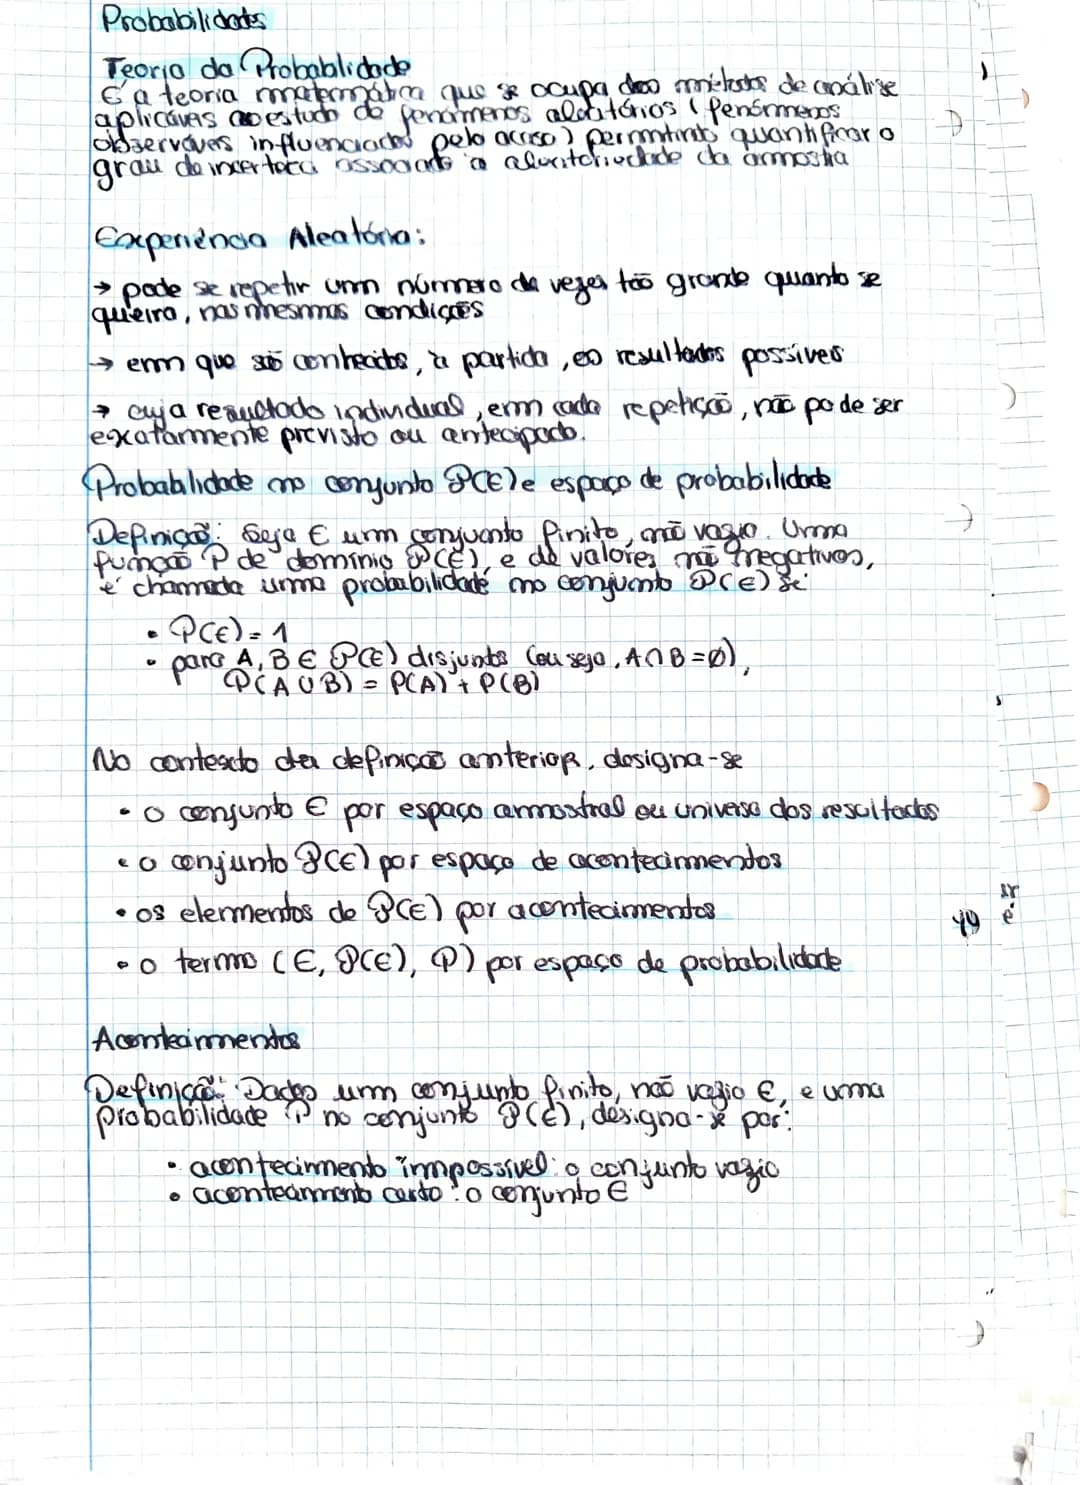 Probabilidades
Teoria da Probablidade
É a teoria matemática que se ocupa dos métodos de análise
aplicáveis ao estudo de fenómenos aleatórios (fenómenos
observáves influenciados pelo acaso) permitindo quantificar o
grau de incerteza associado à aleatoriedade da amostra
Experiência Aleatória:
→ pode se repetir um número de vezes tão grande quanto se
queira, nas mesmas condições
→ em que são conhecidos, à partida, os resultados possíveis
→ cuja resultado individual, em cada repetição, não pode ser
exatamente previsto ou antecipado.
Probabilidade no conjunto P(E) e espaço de probabilidade
Definição: Seja E um conjunto finito, não vazio. Uma
função P de domínio P(E), e de valores não negativos,
é chamada uma probabilidade no conjunto P(E) se:
• P(E) = 1
• para A, B ∈ P(E) disjuntos (ou seja, A∩B=∅),
P(A∪B) = P(A) + P(B)
No contexto da definição anterior, designa-se
• o conjunto E por espaço amostral ou universo dos resultados
• o conjunto P(E) por espaço de acontecimentos
• os elementos de P(E) por acontecimentos
• o termo (E, P(E), P) por espaço de probabilidade
Acontecimentos
Definição: Dados um conjunto finito, não vazio E, e uma
probabilidade P no conjunto P(E), designa-se por:
• acontecimento impossível: o conjunto vazio
• acontecimento certo: o conjunto E